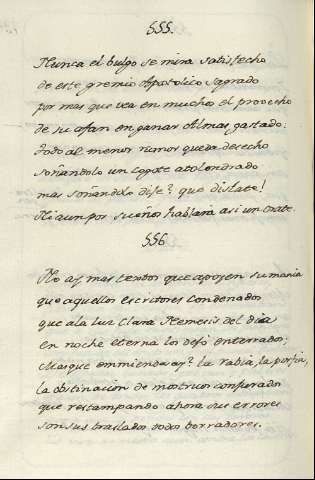 555.
Nunca el bulgo se mira satisfecho
de este gremio Apostolico Sagrado
por mas que vea en muchos el provecho
de su afan en ganar Almas gastado:
todo al menor rumor queda desecho
soñandolo un cogote atolondrado
mas soñandolo dije? que dislate!
Ni aun por sueños hablara asi un Orate.
556
No ay mas textos que apoyen su mania
que aquellos escritores condenados
que a la luz clara Nemesis del dia
en noche eterna los dejó enterrados:
Mas que enmienda ay? la rabia, la porfia,
la obstinacion de mostruos conjurados
que restampando ahora sus errores
son sus traslados todos borradores.